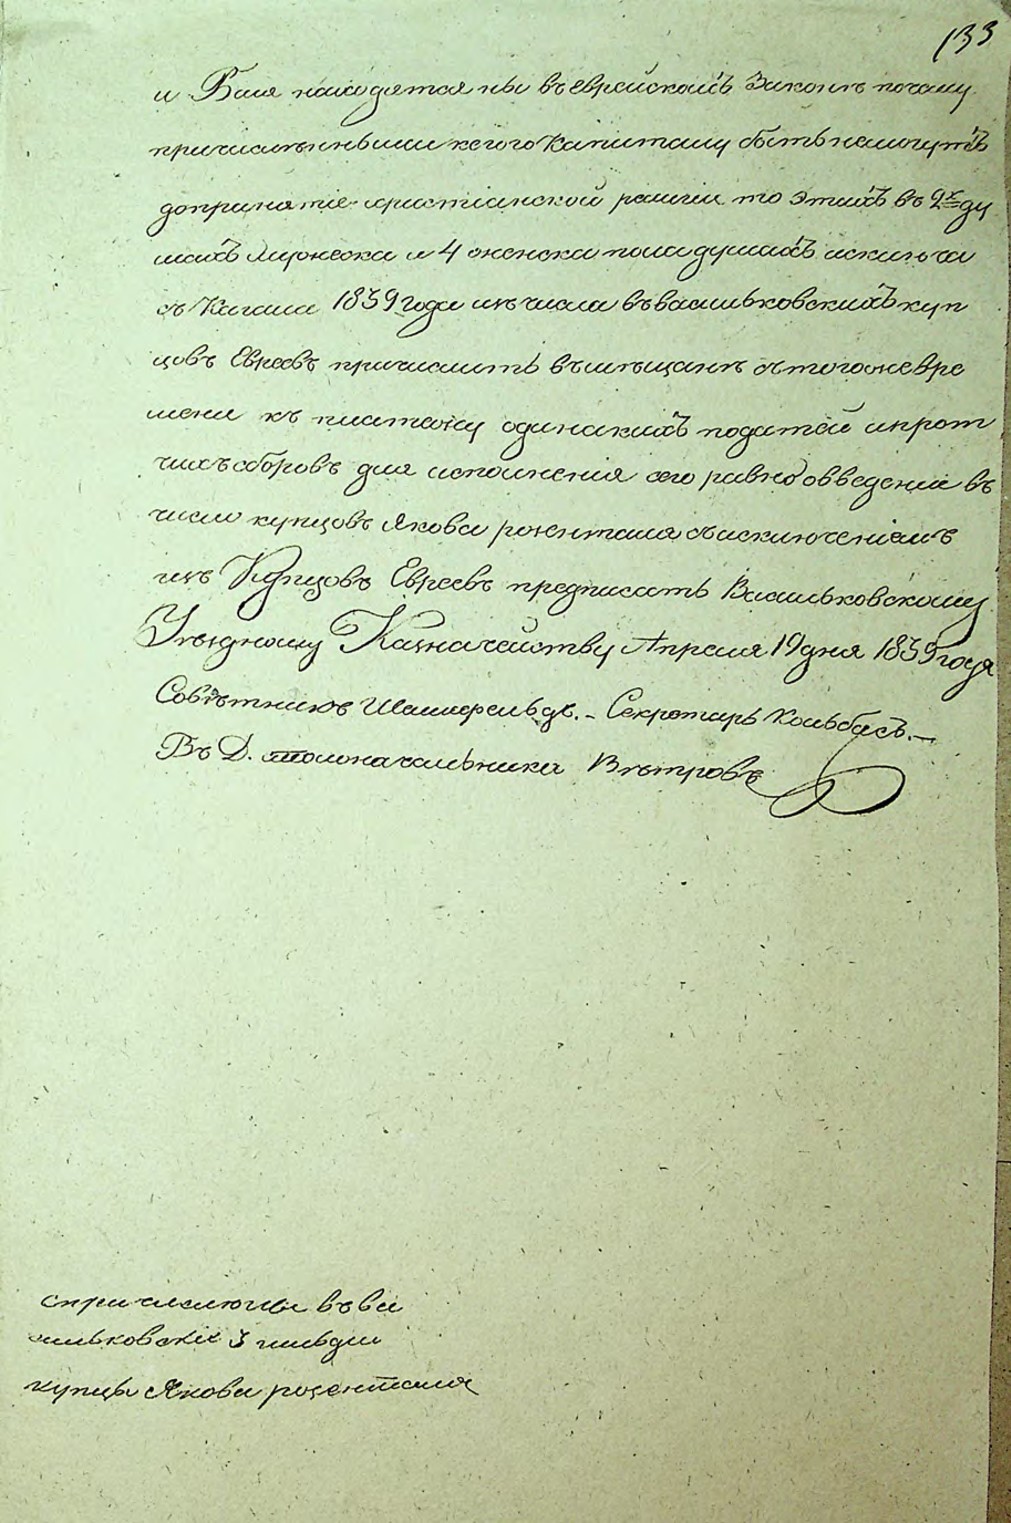 133
и Баля находятся ны въ еврейскомъ Законѣ почему
причисленными к сего Капиталу быть немогутъ
допринятіе христіанской релиіи то этихъ въ 2х ду
махъ мужеска и 4 женска пола душахъ исключа
съ Начала 1839 года изъ числа въ васильковскихъ куп
цовъ Евреевъ причислить въ мѣщанѣ стогоже вре
мени къ платежу одинакихъ податей ипрот
чихъ сборовъ для исполненія сего равно овведеніе въ
число купцовъ Якова розенталя сысключеніемъ
изъ Купцовъ Евреевъ предписать Васильковскому
Уѣздному Казначейству Апреля 19 дня 1839 года
Совѣтникъ . – Секретарь Кольбасъ. –
Въ Д. столоначальника Вѣтровъ
с причислюгны въ ва
сильковскіе 3 гильдіи
купцы Якова розенталя